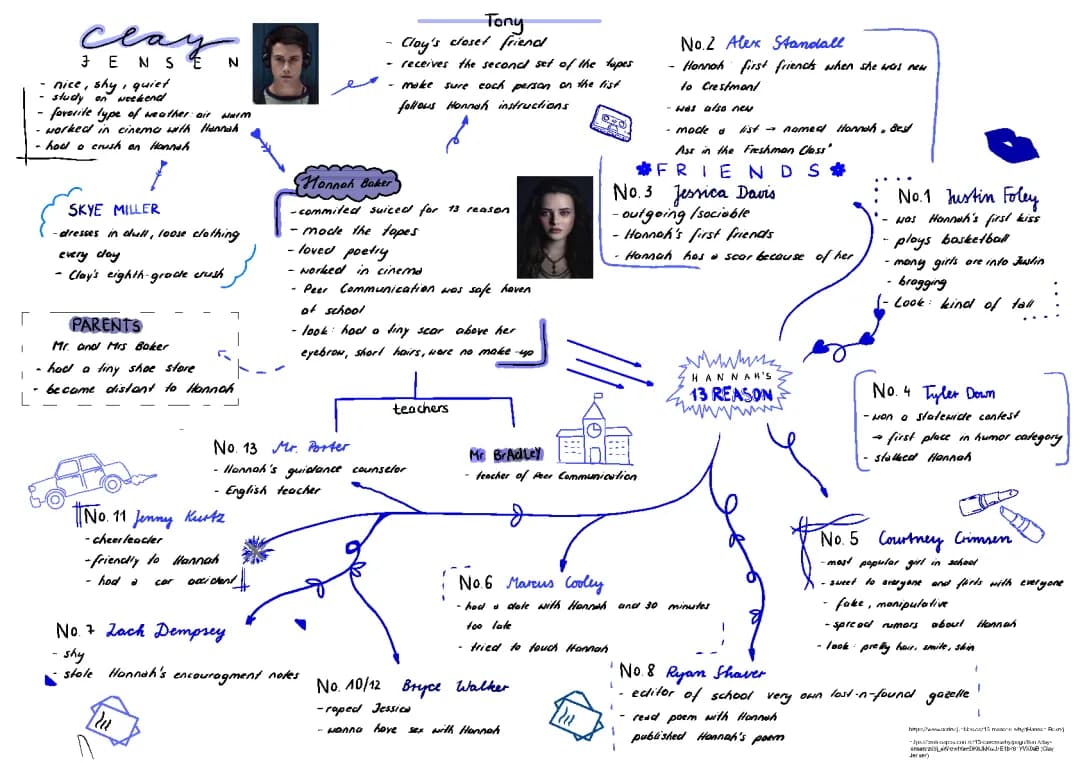 Clay
JENSEN
- nice, shy, quiet
- study on weekend
- favorite type of weather: air warm
- worked in cinema with Hannah
- had a crush on Hannah
Tony
- Clay's closet friend
- receives the second set of the tapes
- make sure each person on the list
follows Hannah instructions
No.2 Alex Standall
- Hannah first friends when she was new
to Crestmont
- was also new
- made a list → named Hannah „Best
Ass in the Freshman Class"
*FRIENDS*
No.3 Jessica Davis
- outgoing /sociable
- Hannah's first friends
- Hannah has a scar because of her
No.1 Justin Foley
- was Hannah's first kiss
- plays basketball
- many girls are into Justin
- bragging
- Look: kind of tall
SKYE MILLER
- dresses in dull, loose clothing
every day
- Clay's eighth-grade crush
Hannah Baker
- commited suiced for 13 reason
- made the tapes
- loved poetry
- worked in cinema
- Peer Communication was safe haven
at school
- look: had a tiny scar above her
eyebrow, short hairs, wore no make-up
PARENTS
Mr. and Mrs Baker
- had a tiny shoe store
- became distant to Hannah
HANNAH'S
13 REASON
No. 4 Tyler Down
- won a statewide contest
→ first place in humor category
- stalked Hannah
teachers
No. 13 Mr. Porter
- Hannah's guidance counselor
- English teacher
Mr BrAdley
- teacher of Peer Communication
No. 11 Jenny Kurtz
- cheerleader
- friendly to Hannah
- had a car accident
No. 5 Courtney Crimsen
- most popular girl in school
- sweet to everyone and flirts with everyone
- fake, manipulative
- spread rumors about Hannah
- look: pretty hair, smile, skin
No.6 Marcus Cooley
- had a date with Hannah and 30 minutes
too late
- tried to touch Hannah
No. 7 Zach Dempsey
- shy
- stole Hannah's encouragment notes
No. 10/12 Bryce Walker
- raped Jessica
- wanna have sex with Hannah
No.8 Ryan Shaver
- editor of school very own lost-n-found gazelle
- read poem with Hannah
published Hannah's poem